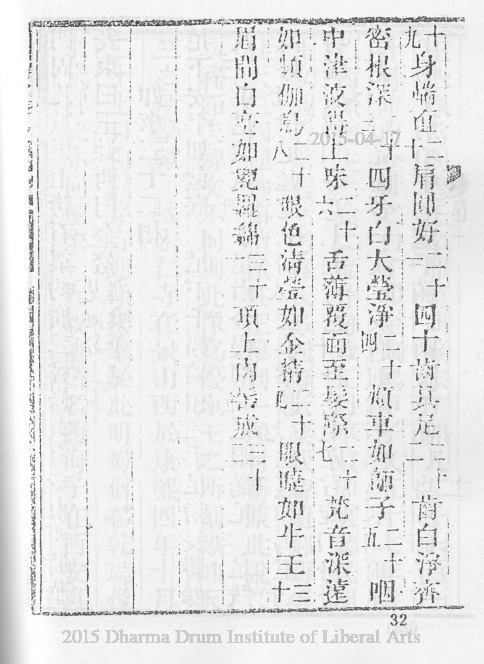 十九身端直二十肩圓好二十一四十齒具足二十二齒白淨齊
密根深二十三四牙白大瑩淨二十四頰車如師子二十五咽
中津液得上味二十六舌薄覆面至髮際二十七梵音深遠
如頻伽鳥二十八眼色清瑩如金精二十九眼睫如牛王三十
眉間白毫如兜羅綿三十一項上肉髻成三十二
2015-04-17
32
2015 Dharma Drum Institute of Liberal Arts